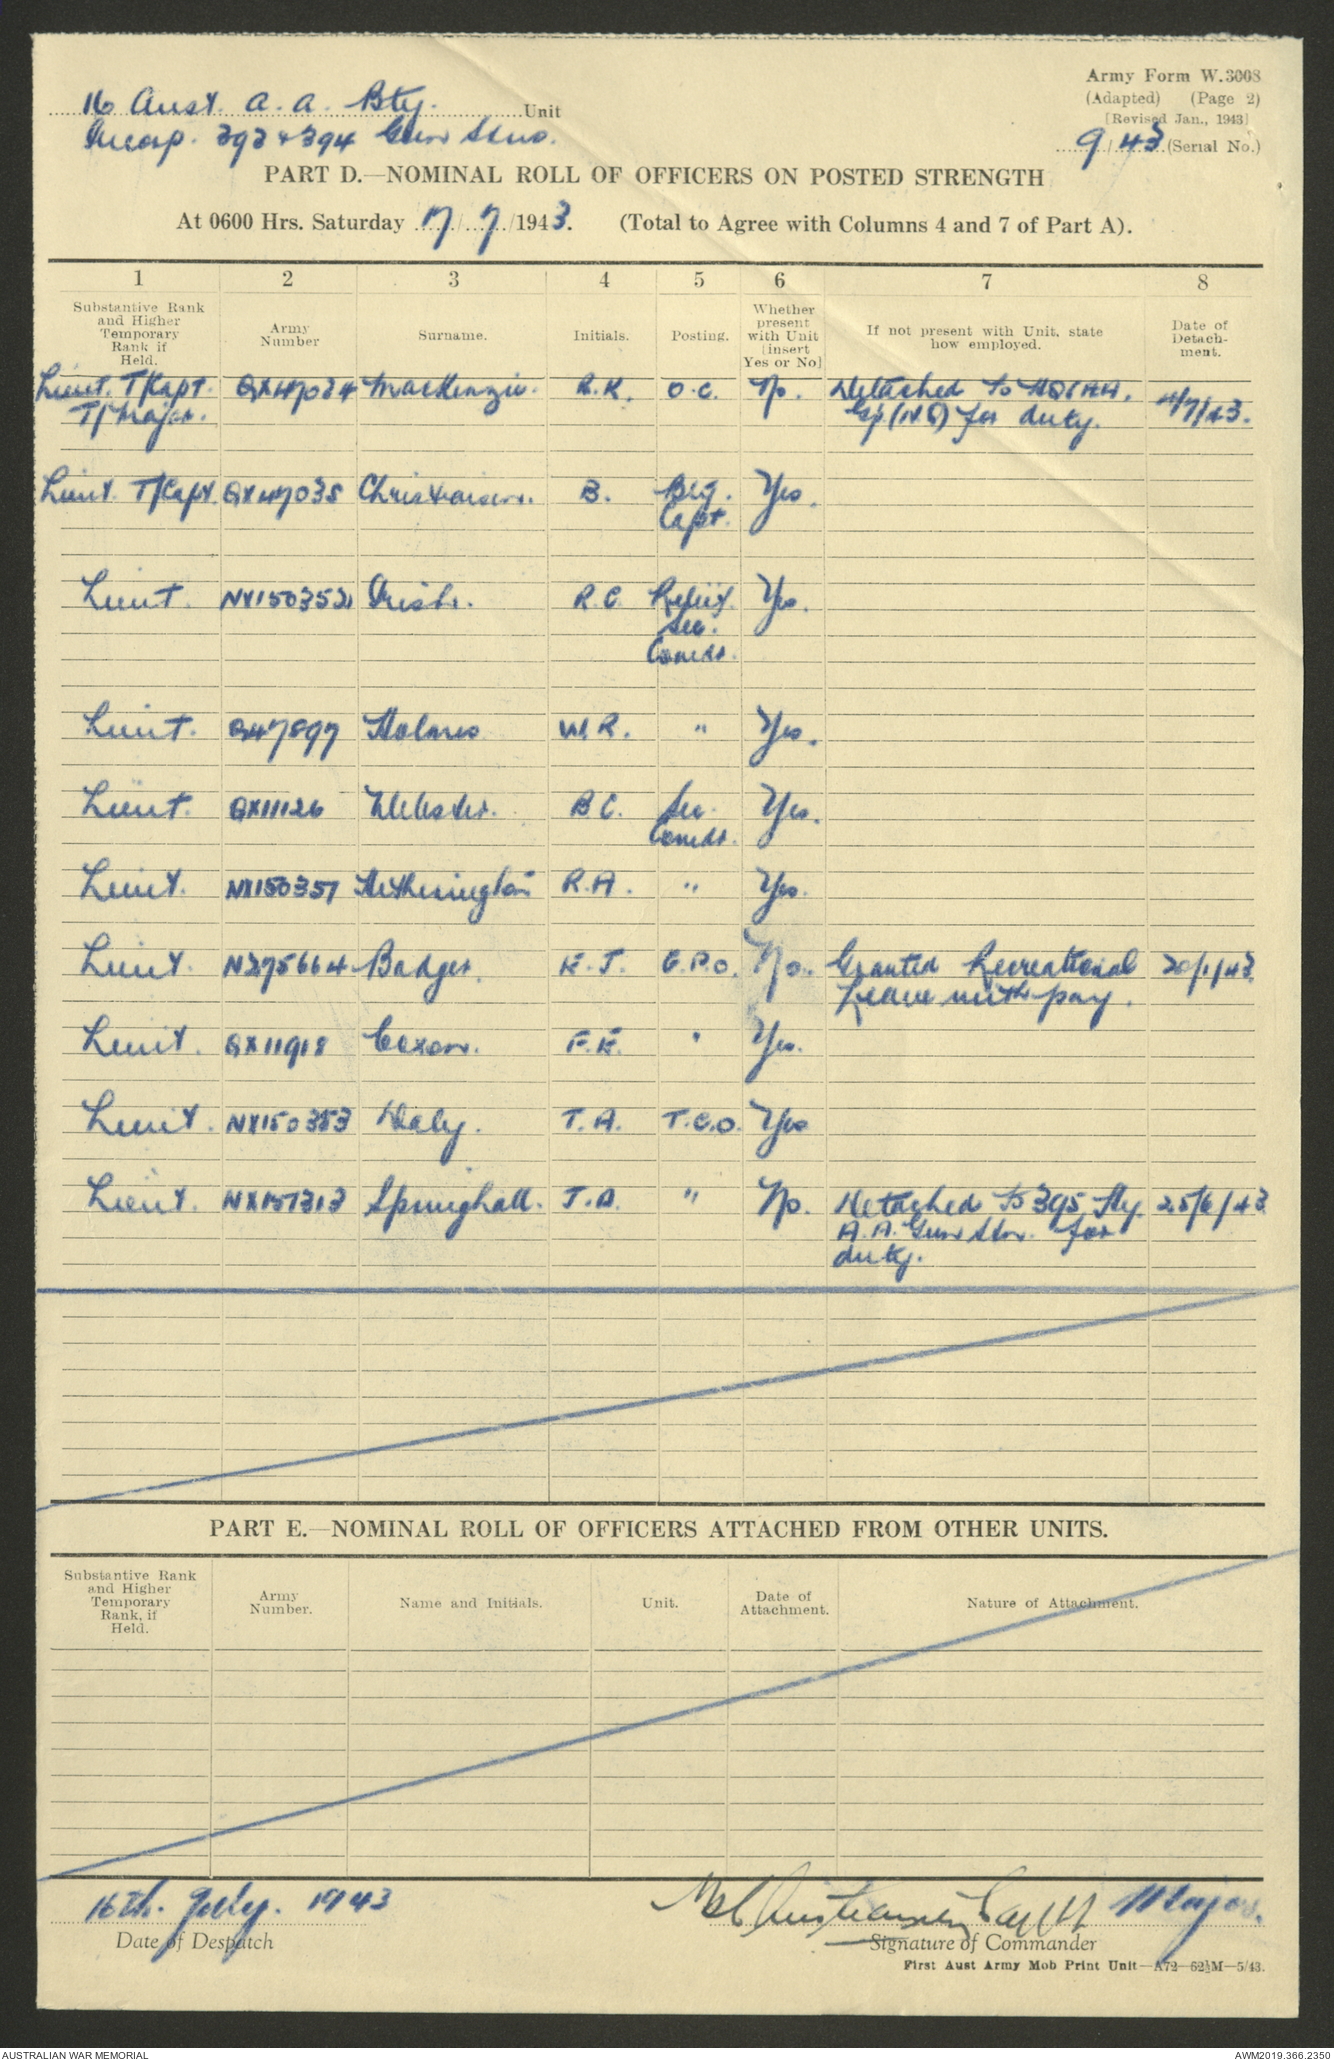 16 Aust. A. A. Bty. Unit
Incorp. 393 & 394 Gun Stns.
Army Form W.3008
(Adapted) (Page 2)
[Revised Jan., 1943]
9/43 (Serial No.)
PART D.—NOMINAL ROLL OF OFFICERS ON POSTED STRENGTH
At 0600 Hrs. Saturday 17/7/1943. (Total to Agree with Columns 4 and 7 of Part A).
1 2 3 4 5 6 7 8
Substantive Rank and Higher Temporary Rank if Held. Army Number Surname. Initials. Posting. Whether present with Unit [insert Yes or No] If not present with Unit, state how employed. Date of Detach-ment.
Lieut. T/Capt. QX47034 MacKenzie. R.K. O.C. No. Detached to HQ AA.
T/Major. Gp (NG) for duty. 4/7/43.
Lieut. T/Capt. QX47035 Christiansen. B. Bty. Yes.
Capt.
Lieut. NX150352 Irish. R.C. Relief Yes.
Sec.
Comdr.
Lieut. Q47897 Holmes W.R. " Yes.
Lieut. QX11126 Webster. B.C. Sec. Yes.
Comdr.
Lieut. NX150357 Hetherington R.A. " Yes.
Lieut. N275664 Badger. E.J. G.P.O. No. Granted Recreational 20/1/43.
Leave with pay.
Lieut. QX11918 Coxon. F.E. " Yes.
Lieut. NX150353 Daly. T.A. T.C.O. Yes
Lieut. NX157313 Springhall. J.A. " No. Detached to 395 Hy 25/6/43.
A.A. Gun Stn. for
duty.
PART E.—NOMINAL ROLL OF OFFICERS ATTACHED FROM OTHER UNITS.
Substantive Rank and Higher Temporary Rank, if Held. Army Number. Name and Initials. Unit. Date of Attachment. Nature of Attachment.
16th. July. 1943 Christiansen Capt Major.
Date of Despatch Signature of Commander
First Aust Army Mob Print Unit—A72—62½M—5/43.
AUSTRALIAN WAR MEMORIAL AWM2019.366.2350